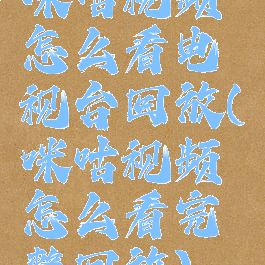 咪咕视频
怎么看电
视台回放(
咪咕视频
怎么看完
整回放)